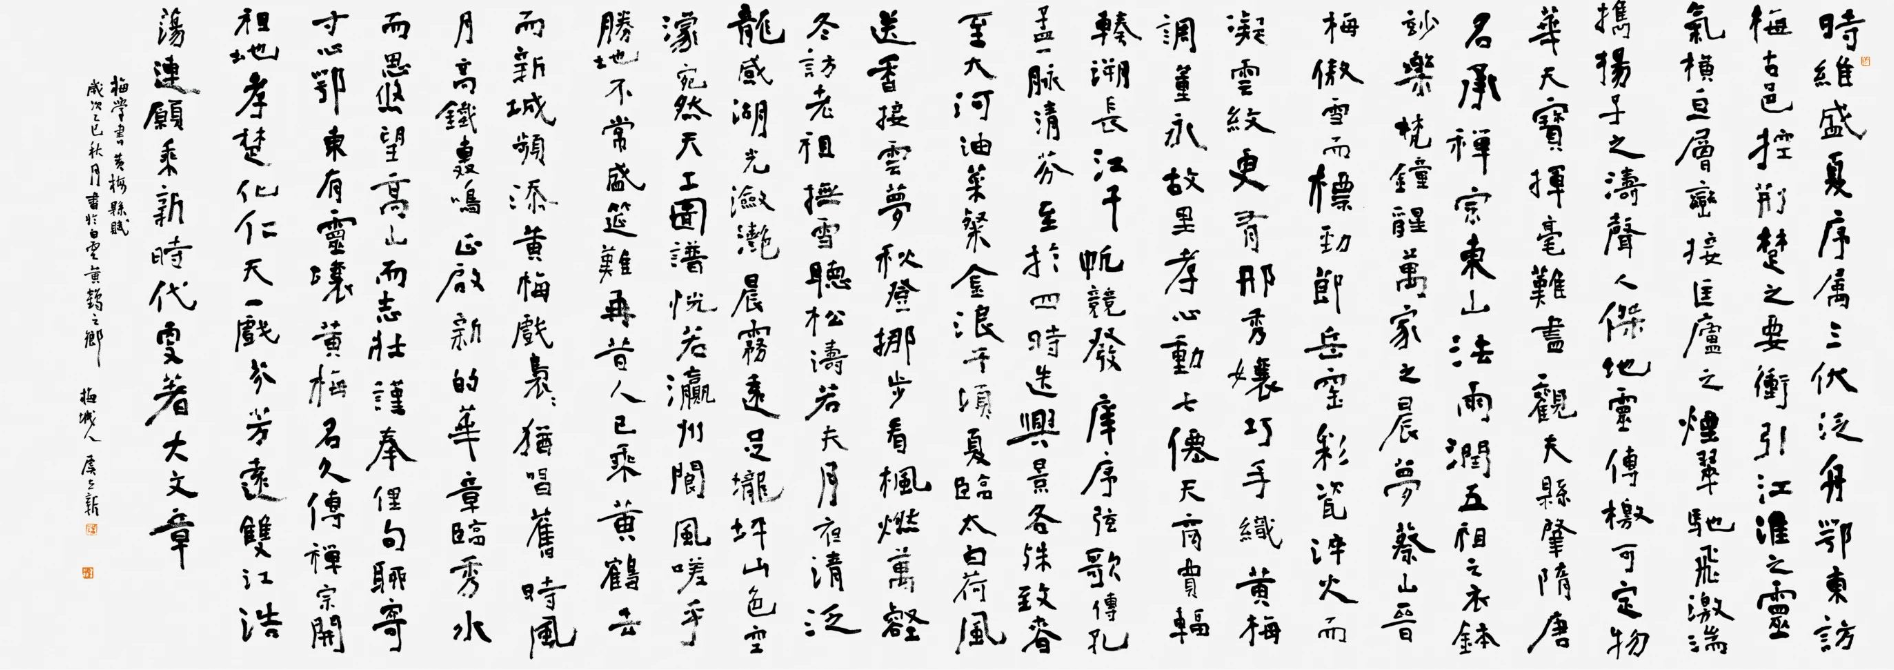 時維盛夏序属三伏泛舟鄂東訪
梅古邑控荊楚之要衝引江淮之靈
氣橫亘層巒接匡廬之煙翠馳飛激湍
攜揚子之濤聲人傑地靈傳檄可定物
華天寶揮毫難盡觀夫縣肇隋唐
名承禪宗東山法雨潤五祖之衣鉢
妙樂梵鐘醒萬家之晨夢蔡山晉
梅傲雪而標勁節岳窑彩瓷淬火而
凝雲紋更有那秀孃巧手織黃梅
調董永故里孝心動七僊天商賈輻
輳溯長江千帆競發庠序弦歌傳孔
孟一脉清芬至於四時迭興景各殊致春
至大河油菜粲金浪千頃夏臨太白荷風
送香接雲夢秋登挪步看楓燃萬壑
冬訪老祖撫雪聽松濤若夫月夜清泛
龍感湖光瀲灧晨霧遠足壠坪山色空
濛宛然天工圖譜恍若瀛州閬風嗟乎
勝地不常盛筵難再昔人已乘黃鶴去
而新城頻添黃梅戲裊裊猶唱舊時風
月高鐵轟鳴正啟新的華章臨秀水
而思悠望高山而志壯謹奉俚句聊寄
寸心鄂東有靈壤黃梅名久傳禪宗開
祖地孝楚化仁天一戲芬芳遠雙江浩
蕩連願乘新時代更著大文章
梅學書黃梅縣賦
歲次乙巳秋月書於白雲黃鶴之鄉 梅城人 虞立新